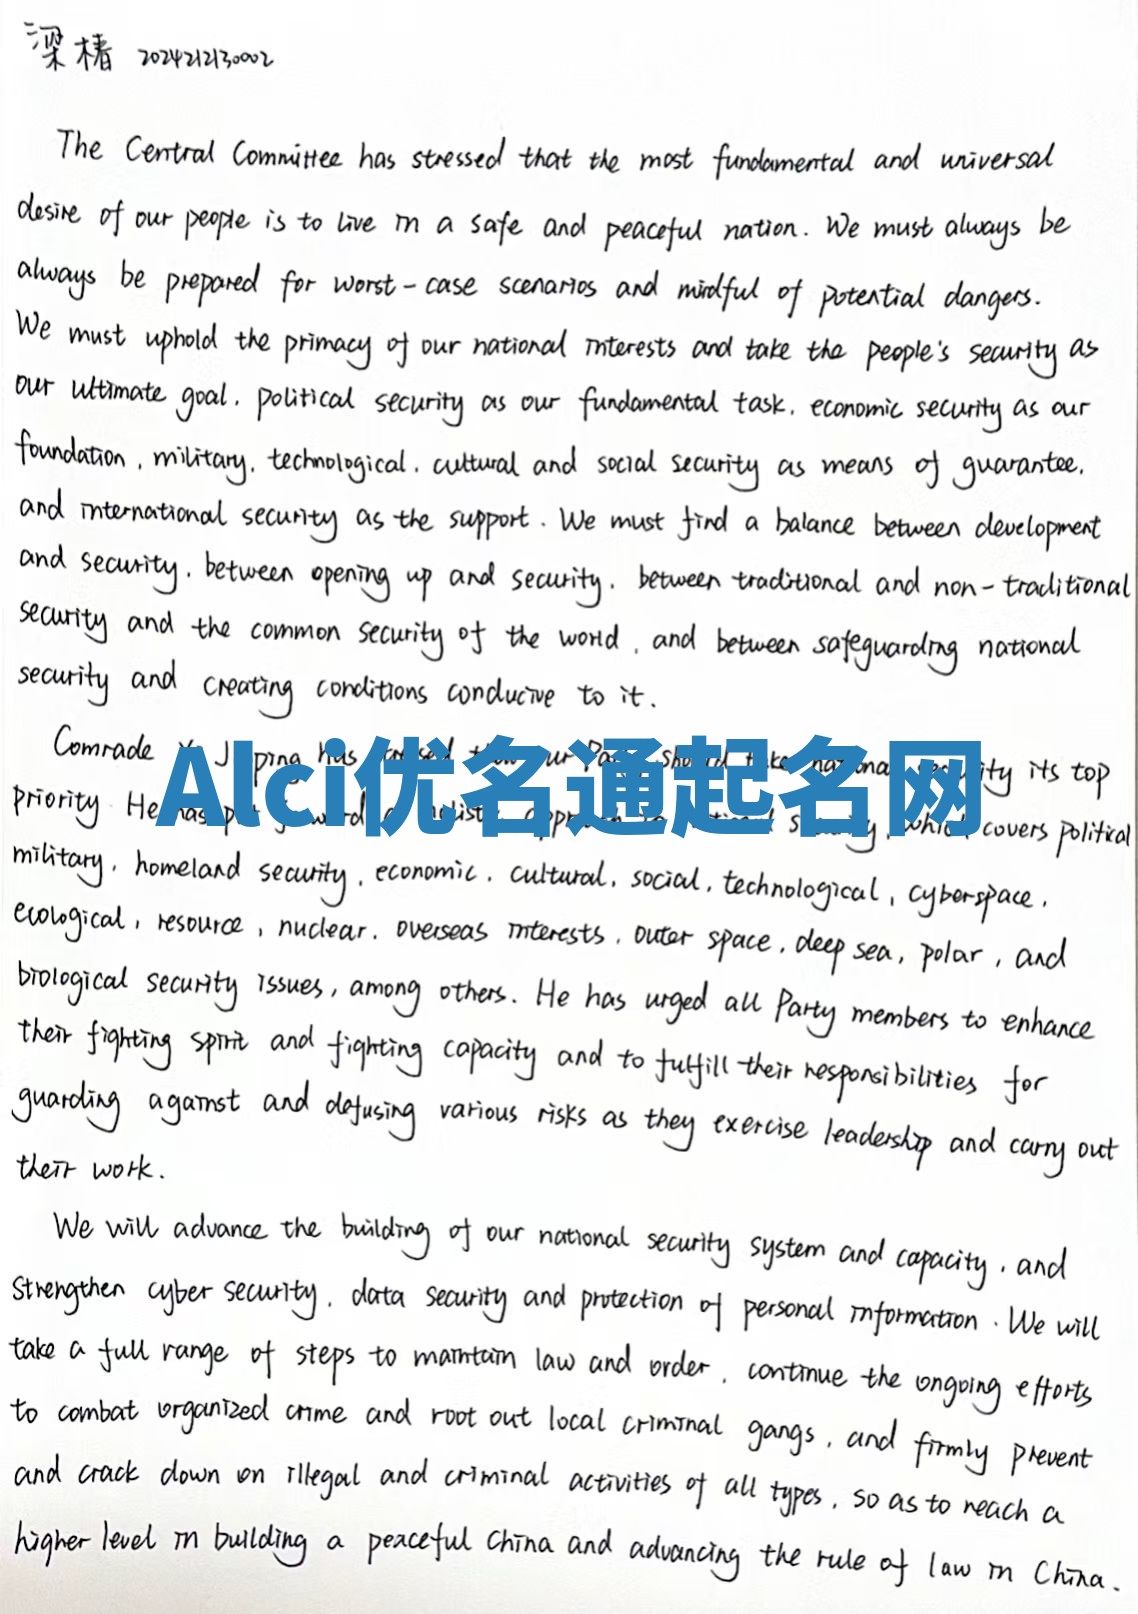 梁椿 2024212130002
The Central Committee has stressed that the most fundamental and universal
desire of our people is to live in a safe and peaceful nation. We must always be
always be prepared for worst-case scenarios and mindful of potential dangers.
We must uphold the primacy of our national interests and take the people's security as
our ultimate goal, political security as our fundamental task, economic security as our
foundation, military, technological, cultural and social security as means of guarantee,
and international security as the support. We must find a balance between development
and security, between opening up and security, between traditional and non-traditional
security and the common security of the world, and between safeguarding national
security and creating conditions conducive to it.
Comrade Jinping has our should take national security its top
Alci优名通起名网
priority. He has which covers political
military, homeland security, economic, cultural, social, technological, cyberspace,
ecological, resource, nuclear, overseas interests, outer space, deep sea, polar, and
biological security issues, among others. He has urged all Party members to enhance
their fighting spirit and fighting capacity and to fulfill their responsibilities for
guarding against and defusing various risks as they exercise leadership and carry out
their work.
We will advance the building of our national security system and capacity, and
strengthen cyber security, data security and protection of personal information. We will
take a full range of steps to maintain law and order, continue the ongoing efforts
to combat organized crime and root out local criminal gangs, and firmly prevent
and crack down on illegal and criminal activities of all types, so as to reach a
higher level in building a peaceful China and advancing the rule of law in China.